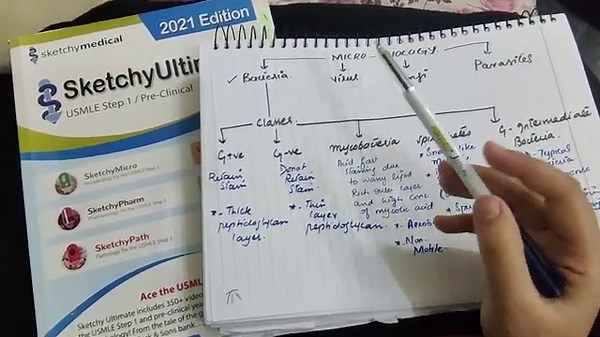 sketchymedical
2021 Edition
SketchyUltim
USMLE Step 1 / Pre-Clinical
SketchyMicro
SketchyPharm
SketchyPath
Pathology for the USMLE Step 1
Ace the USML
Sketchy Ultimate includes 350+ video
the USMLE Step 1 and pre-clinical year
MICRO
IOLOGY
✓ Bacteria
virus
Parasites
Classes
G+ve
Retain
Stain
*- Thick
peptidoglycan
layer.
G-ve
Donot
Retain
Stain
*- Thin
layer
peptidoglycan.
mycobacteria
Acid fast
staining due
to waxy lipid
Rich outer layer
and high conc
of mycolic acid
*- Aerob
*- Non-
Motile
G- Intermediate
Bacteria.